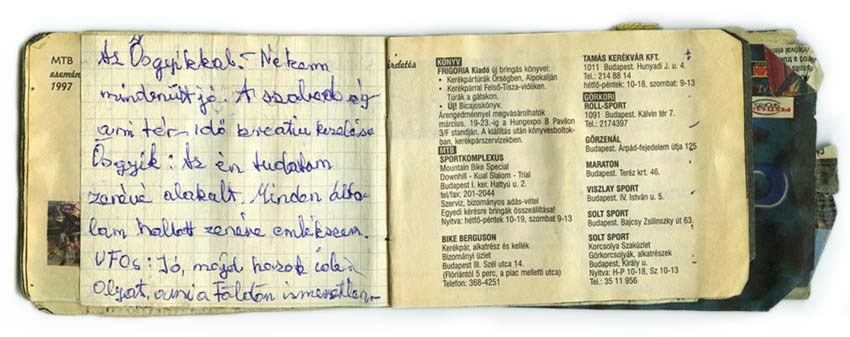 MTB
esemén
1997
Az Ősgyíkkal. - Nekem
mindenütt jó. A szabadság
ami tér-idő kreatív kezelése
Ősgyík: Az én tudatom
zenévé alakult. Minden álta-
lam hallott zenére emlékszem.
UFOs: Jó, majd hozok ide
olyat, ami a Földön ismeretlen-
irdetés
KÖNYV
FRIGORIA Kiadó új bringás könyvei:
• Kerékpártúrák Őrségben, Alpokalján
• Kerékpárral Felső-Tisza-vidéken.
Túrák a gátakon.
• Új! Bicajoskönyv.
Árengedménnyel megvásárolhatók
március. 19-23.-ig a Hungexpo B Pavilon
3/F standján. A kiállítás után könyvesboltok-
ban, kerékpárszervizekben.
MTB
SPORTKOMPLEXUS
Mountain Bike Special
Downhill - Kual Slalom - Trial
Budapest I. ker. Hattyú u. 2.
tel/fax: 201-2044
Szerviz, bizományos adás-vétel
Egyedi kérésre bringák összeállítása!
Nyitva: hétfő-péntek 10-19, szombat 9-13
BIKE BERGUSON
Kerékpár, alkatrész és kellék
Bizományi üzlet
Budapest III. Szél utca 14.
(Flóriántól 5 perc, a piac melletti utca)
Telefon: 368-4251
TAMÁS KERÉKVÁR KFT.
1011 Budapest. Hunyadi J. u. 4.
Tel.: 214 88 14
hétfő-péntek: 10-18, szombat: 9-13
GÖRKORI
ROLL-SPORT
1091 Budapest. Kálvin tér 7.
Tel.: 2174397
GÖRZENÁL
Budapest. Árpád-fejedelem útja 125
MARATON
Budapest. Teréz krt. 46.
VISZLAY SPORT
Budapest. IV. István u. 5.
SOLT SPORT
Budapest. Bajcsy Zsilinszky út 63.
SOLT SPORT
Korcsolya Szaküzlet
Görkorcsolyák, alkatrészek
Budapest, Király u.
Nyitva: H-P 10-18, Sz 10-13
Tel.: 35 11 956